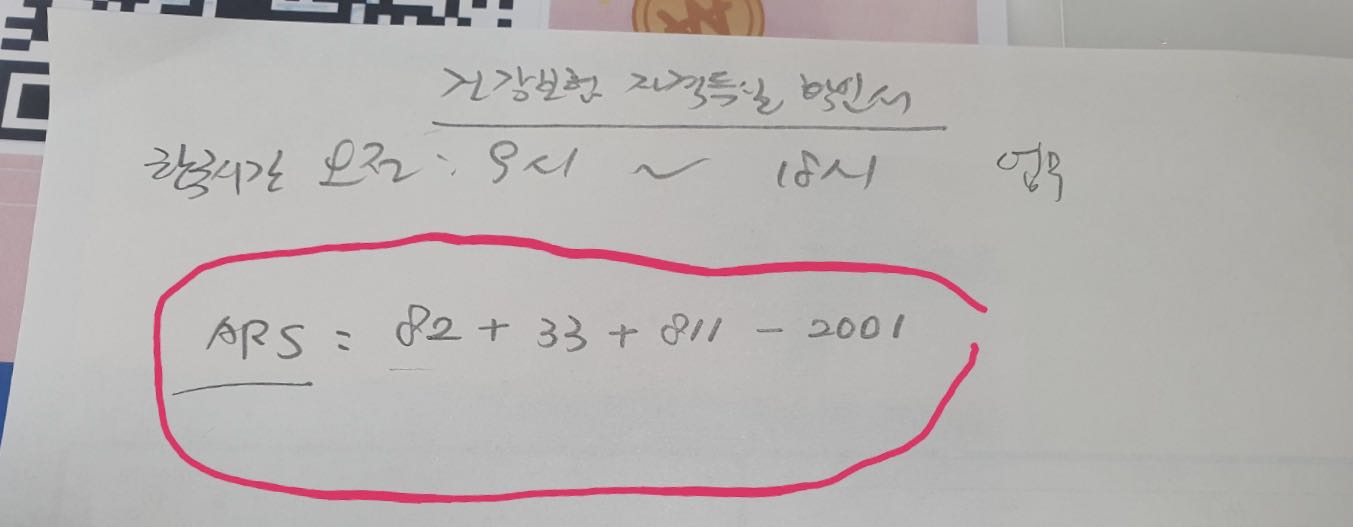 건강보험 자격득실 확인서
한국시간 오전 : 9시 ~ 18시 업무
ARS = 82 + 33 + 811 - 2001